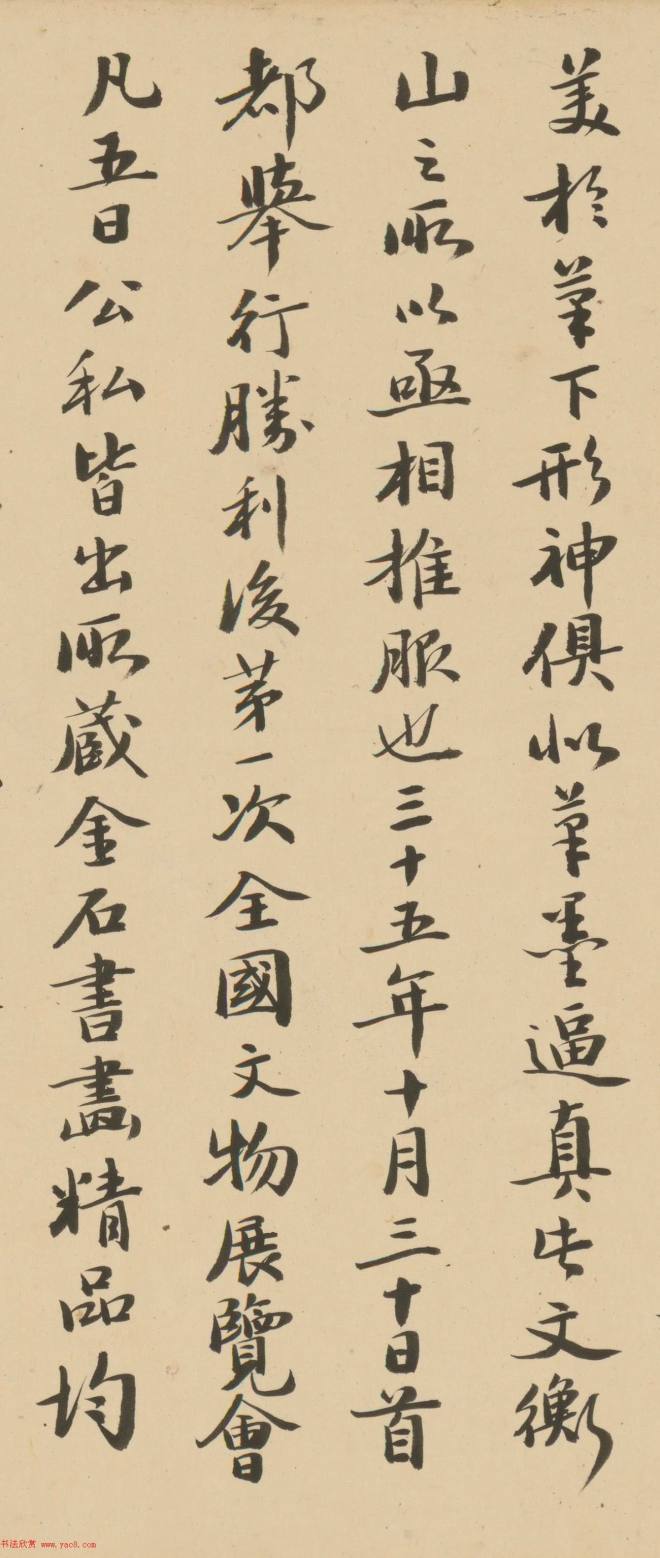 美於筆下形神俱似筆墨逼真此文衡
山之所以亟相推服也三十五年十月三十日首
都舉行勝利後第一次全國文物展覽會
凡五日公私皆出所藏金石書畫精品均
书法欣赏 www.yac8.com